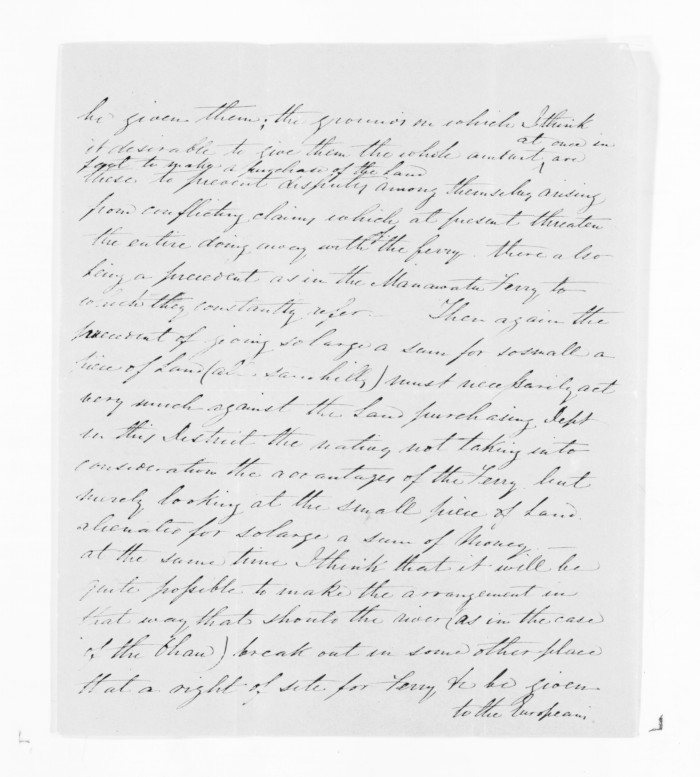 be given them; the grounds on which I think
it desirable to give them the whole amount, at once in
& not to make a purchase of the Land are
these. to prevent disputes among themselves arising
from conflicting claims which at present threaten
the entire doing away with the ferry. there also
being a precedent as in the Manawatu Ferry to
which they constantly refer. Then again the
precedent of giving so large a sum for so small a
piece of Land (all sandhills) must necessarily act
very much against the Land purchasing Dept
in this District the natives not taking into
consideration the advantages of the Ferry but
merely looking at the small piece of Land
alienated for so large a sum of Money
at the same time I think that it will be
quite possible to make the arrangement in
that way that should the river (as in the case
of the Ohau) break out in some other place
that a right of site for Ferry &c be given
to the Europeans.